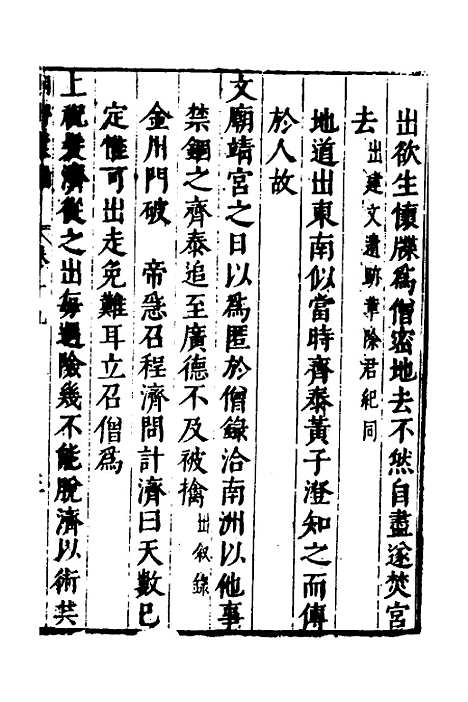 出欲生懷牒爲僧密地去不然自盡遂焚宮
去出建文遺跡革除君紀同
地道出東南似當時齊泰黃子澄知之而傳
於人故
文廟靖宮之日以爲匿於僧錄洽南洲以他事
禁錮之齊泰追至廣德不及被擒出叙錄
金川門破　帝急召程濟問計濟曰天數已
定惟可出走免難耳立召僧爲
上祝髮濟從之出每遇險幾不能脫濟以術其